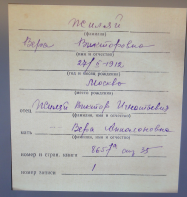 Жиляй
(фамилия)
Вера Викторовна
(имя и отчество)
27/5 1912
(год и месяц рождения)
Москва
(место рождения)
отец Жиляй Виктор Игнатьевич
(фамилия, имя и отчество)
мать Вера Афанасовна
(фамилия, имя и отчество)
номер и стран. книги стр 35
номер записи 1